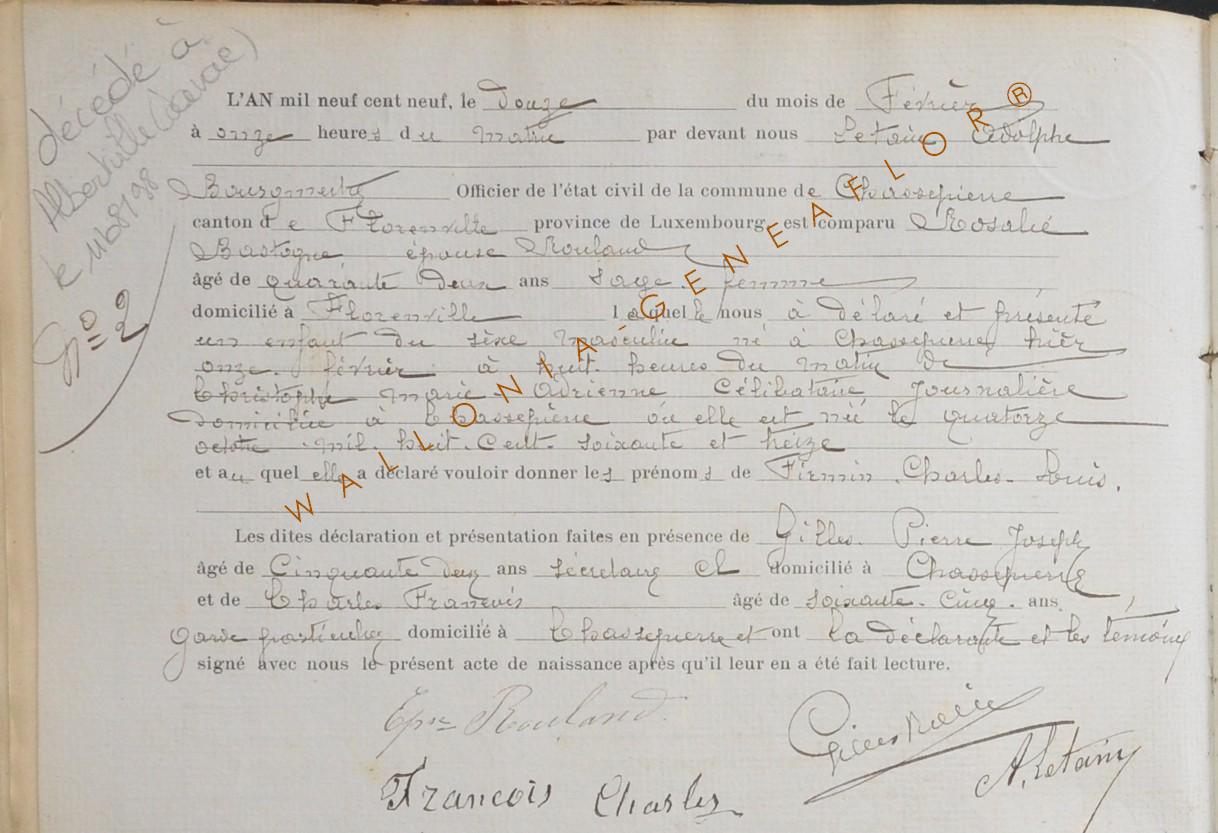 décédé à
Albertville (Savoie)
le
N° 2
L'AN mil neuf cent neuf, le Douze du mois de Février
à onze heures du matin par devant nous Letain Adolphe
Bourgmestre Officier de l'état civil de la commune de Chassepierre
canton de Florenville province de Luxembourg, est comparu Rosalie
Bastogne épouse Rouland
âgé de quarante Deux ans sage. femme
domicilié à Florenville laquelle nous à délaré et présenté
un enfant du sèxe masculin né à Chassepierre hièr
onze. février à huit heures du matin de
Christophe Marie Adrienne Célibataire Journalière
domiciliée à Chassepierre où elle est née le quatorze
octobre mil. huit. Cent. soixante et treize
et au quel elle a déclaré vouloir donner les prénoms de Firmin Charles Louis.
Les dites déclaration et présentation faites en présence de Gilles Pierre Joseph
âgé de Cinquante deux ans sécretaire et domicilié à Chassepierre
et de Charles François âgé de soixante. Cinq. ans
Garde particulier domicilié à Chassepierre et ont la déclarante et les témoins
signé avec nous le présent acte de naissance après qu'il leur en a été fait lecture.
Epse Rouland.
A. Letain
François Charles
WALLONIA-GENEAFLOR®